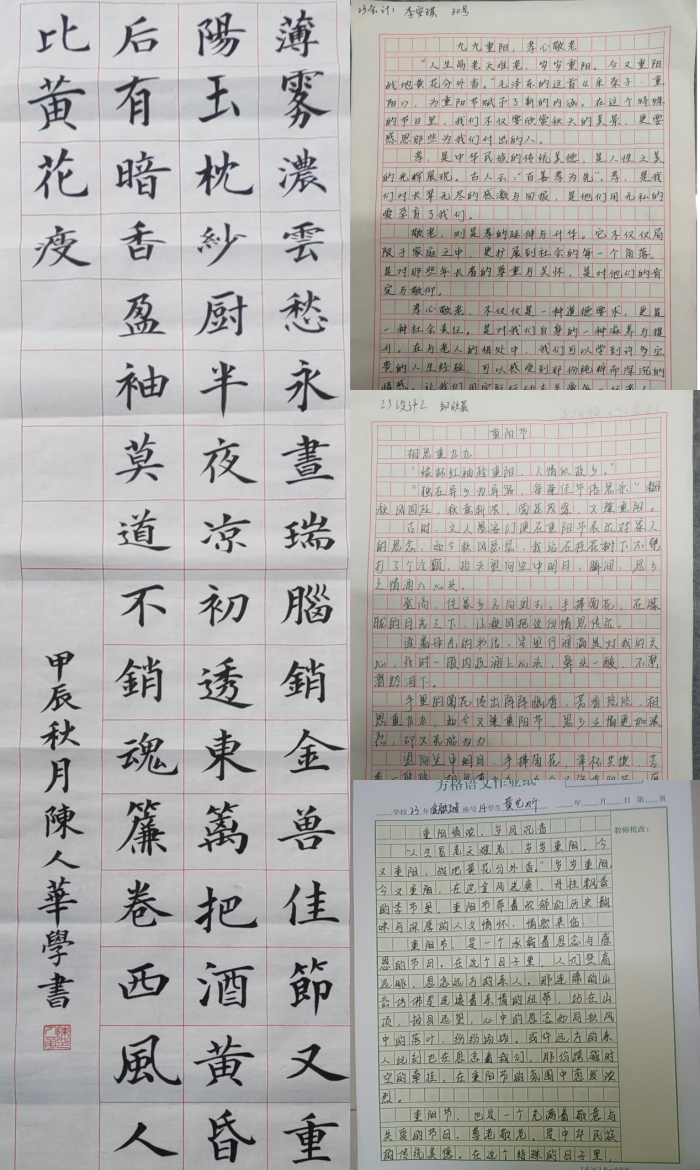 薄雾濃雲愁永晝瑞腦銷金兽佳節又重
陽玉枕紗厨半夜凉初透東篱把酒黄昏
后有暗香盈袖莫道不銷魂簾卷西風人
比黄花瘦
甲辰秋月陳人華學書
23会计1 李安琪 30号
九九重阳，孝心敬老
“人生易老天难老，岁岁重阳。今又重阳
战地黄花分外香。”毛泽东的这首《采桑子·重
阳》，为重阳节赋予了新的内涵。在这个特殊
的节日里，我们不仅要欣赏秋天的美景，更要
感恩那些为我们付出的人。
孝，是中华民族的传统美德，是人性之美
的光辉展现。古人云：“百善孝为先”。孝，是我
们对长辈无尽的感激与回报，是他们用无私的
爱孕育了我们。
敬老，则是孝的延伸与升华。它不仅仅局
限于家庭之中，更扩展到社会的每一个角落。
是对那些年长者的尊重与关怀，是对他们的肯
定与敬仰。
孝心敬老，不仅仅是一种道德要求，更是
一种社会责任。是对我们自身的一种滋养与提
升。在与老人的相处中，我们可以学到许多宝
贵的人生经验，可以感受到那份纯粹而深沉的
23设计2
重阳节
相思重九九
“缘杯红袖趁重阳，人情似故乡。”
“独在异乡为异客，每逢佳节倍思亲”
秋风四起，秋意渐浓，菊花茂盛，又逢重阳。
古时，文人墨客们便在重阳节表达对家人
的思念，如今秋风瑟瑟，我站在桂花树下不免
打了个冷颤，抬头望向空中明月，瞬间，思乡
之情涌入心头。
登高，往故乡方向望去，手捧菊花，在朦
胧的月光之下，让秋风把这份情思传达。
读着母亲的书信，字里行间满是对我的关
心，我时一股内疚涌上心头，鼻头一酸，不禁
潸然泪下。
手里的菊花传出阵阵幽香，若有隐隐，相
思重九九，如今又逢重阳节，思乡之情更加浓
烈，却又无能为力。
望向空中明月，手捧菊花，举杯共饮，
方格语文作业纸
学校 23 年 班号 14 学生 年 月 日 第 页
教师批改：
重阳情浓，岁月沉香
“人生易老天难老，岁岁重阳，今
又重阳，战地黄花分外香。”岁岁重阳，
今又重阳，在这金风送爽、丹桂飘香
的季节里，重阳节带着浓郁的历史韵
味与深厚的人文情怀，悄然来临
重阳节，是一个承载着思念与感
恩的节日。在这个日子里，人们登高
远眺，思念远方的亲人。那连绵的山
峦仿佛是连接着亲情的纽带，站在山
顶，极目远望，心中的思念如同秋风
中的落叶，纷纷扬扬，或许远方的亲
人此刻也在思念着我们，那份跨越时
空的牵挂，在重阳节的氛围中愈发浓
烈。
重阳节，也是一个充满着敬意与
关爱的节日。尊老敬老，是中华民族
的传统美德。在这个特殊的日子里，